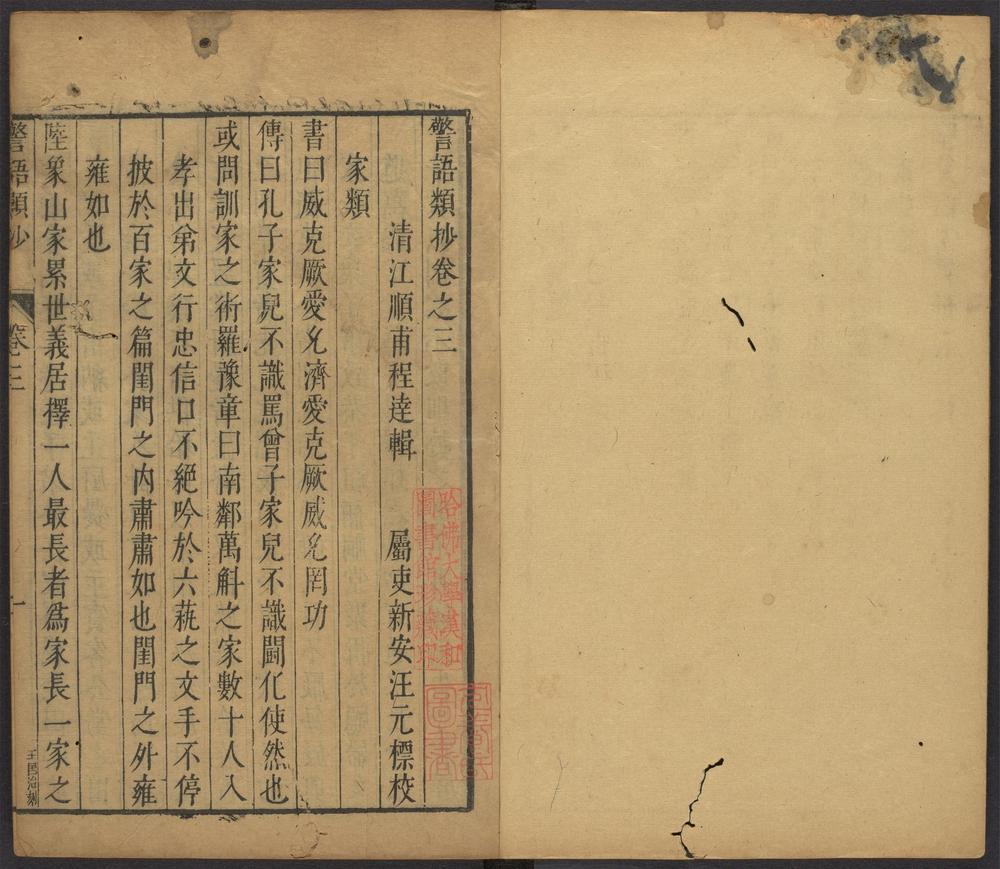 警語類抄卷之三
清江順甫程達輯 屬吏新安汪元標校
家類
書曰威克厥愛允濟愛克厥威允罔功
傳曰孔子家兒不識罵曾子家兒不識鬭化使然也
或問訓家之術羅豫章曰南鄰萬斛之家數十人入
孝出弟文行忠信口不絕吟於六蓺之文手不停
披於百家之篇閨門之內肅肅如也閨門之外雍
雍如也
陸象山家累世義居擇一人最長者爲家長一家之
警語類抄 卷之三 一
哈佛大學漢和
圖書館珍藏印
圖書